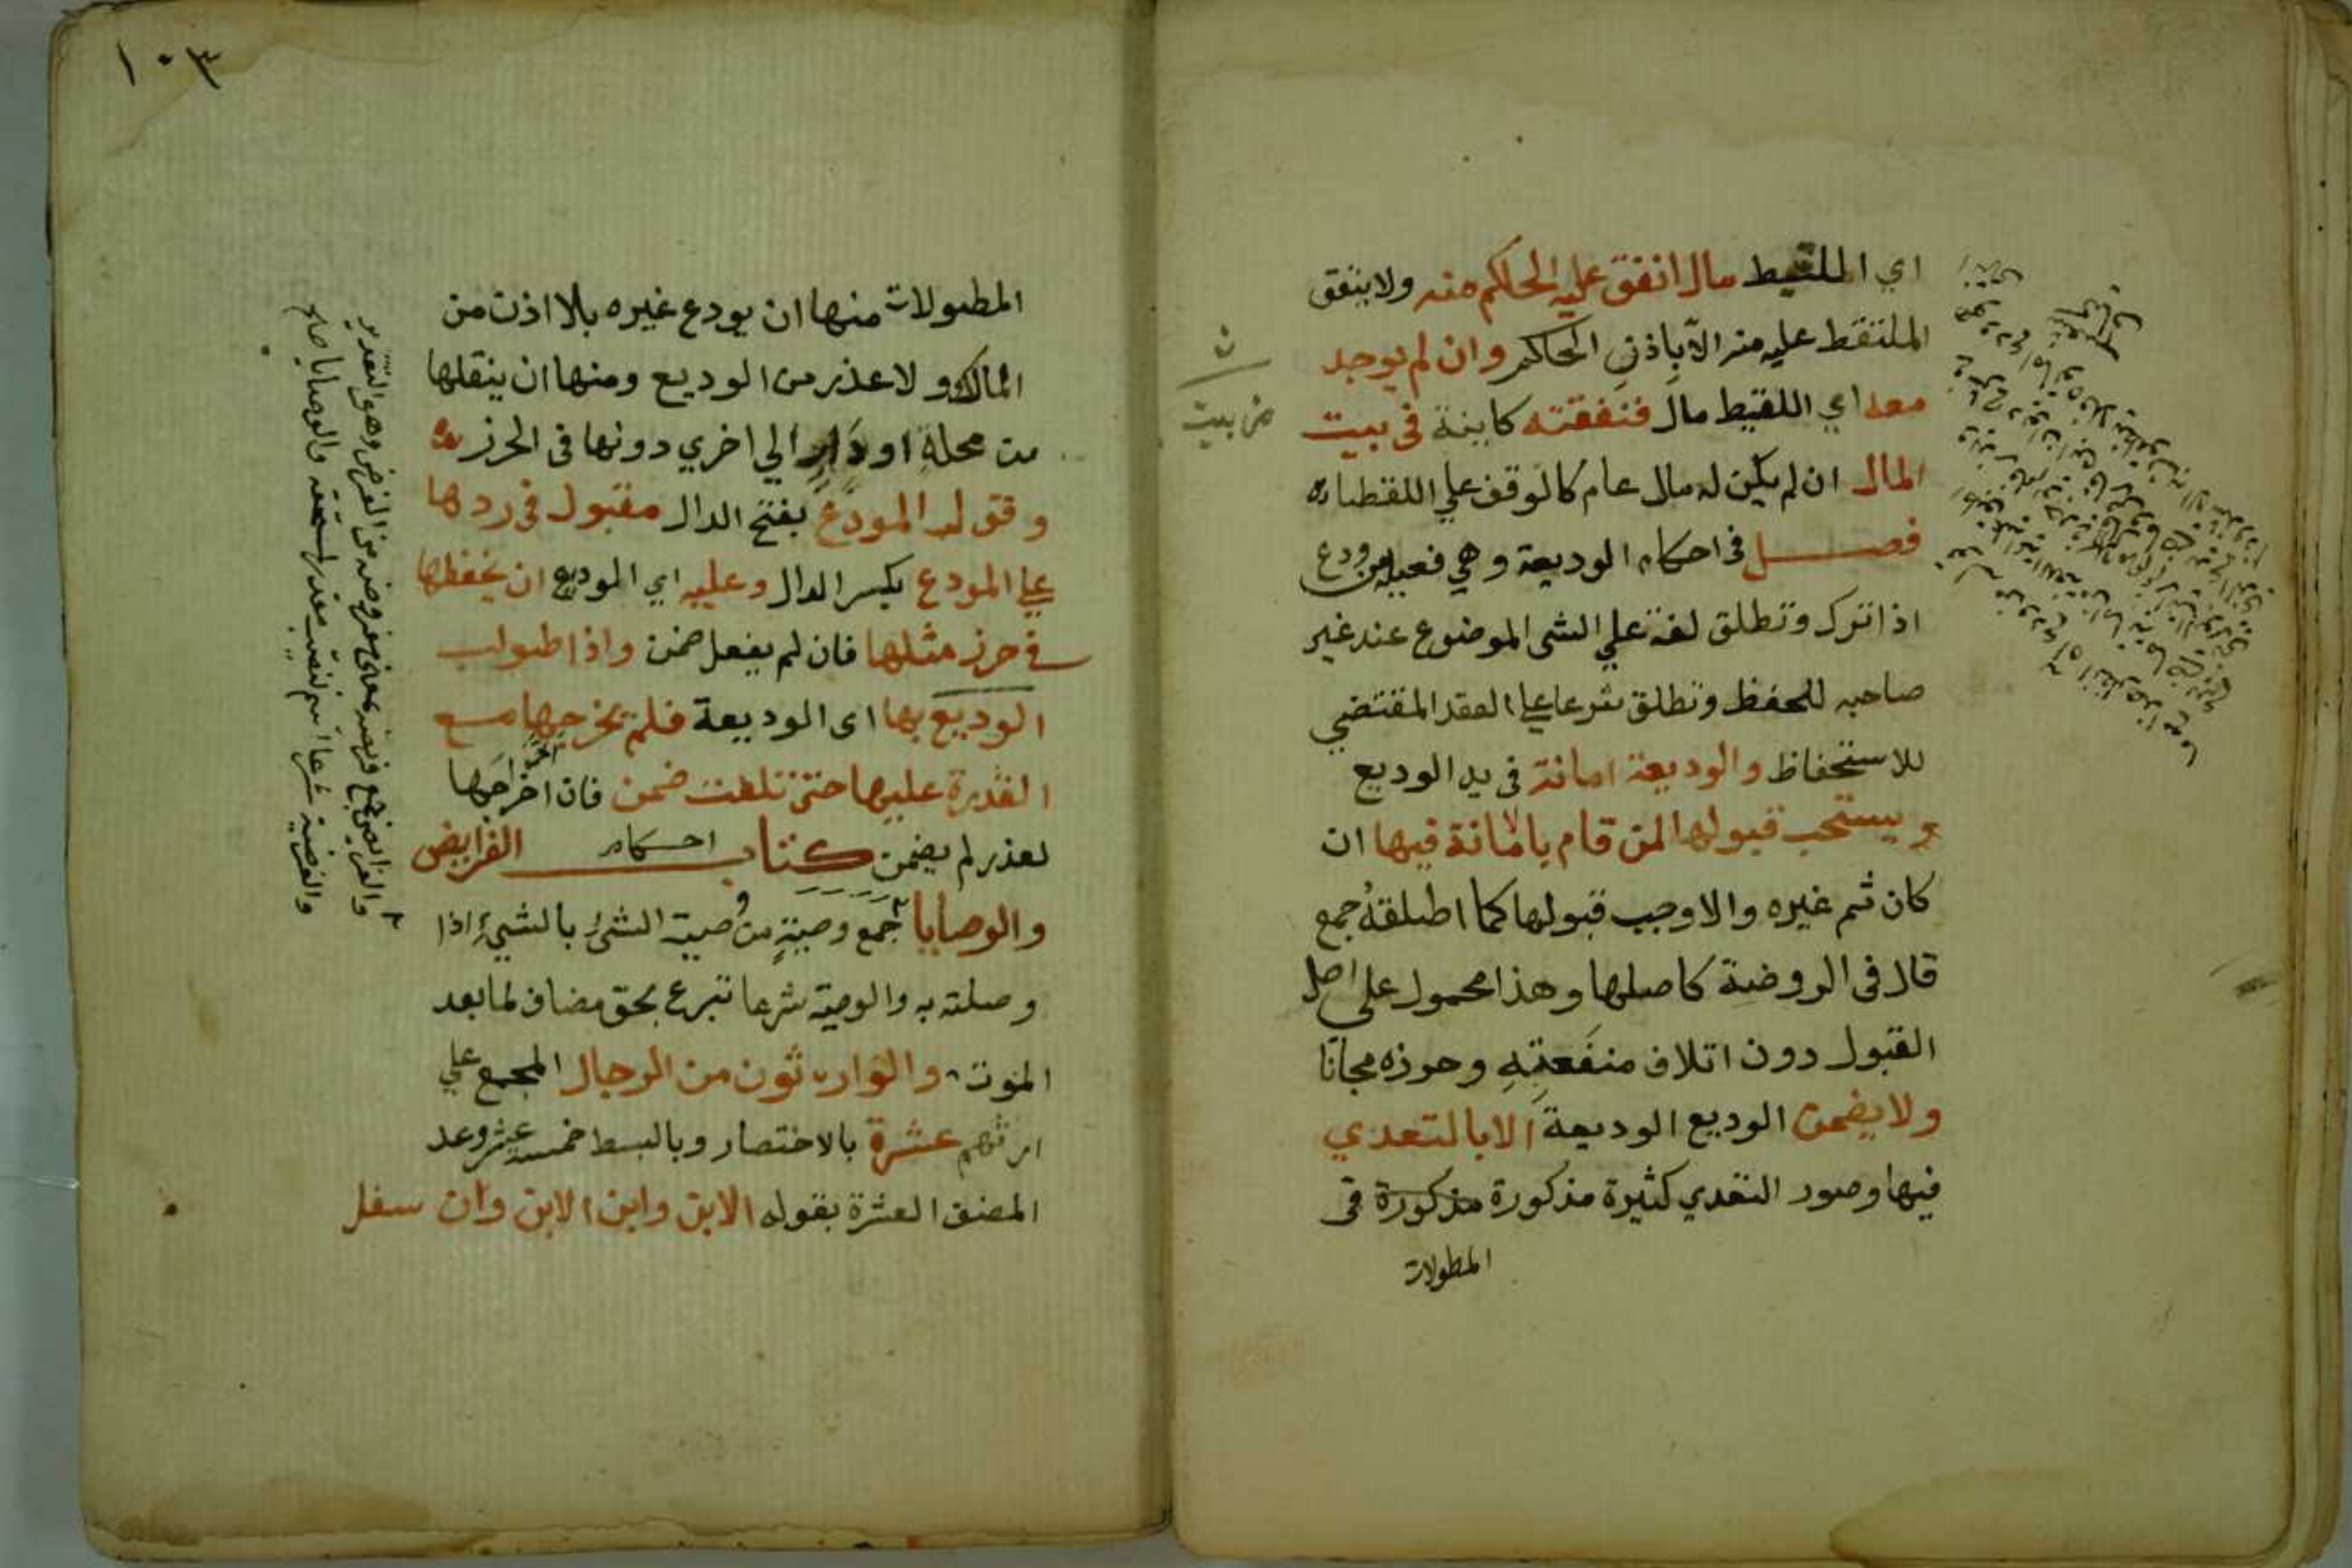 اي اللقيط مال انفق عليه الحاكم منه ولا ينفق
الملتقط عليه منه الا باذن الحاكم وان لم يوجد
معه اي اللقيط مال فنفقته كاينة في بيت
المال ان لم يكن له مال عام كالوقف علي اللقطاء
فصل في احكام الوديعة وهي فعيلة من ودع
اذا ترك وتطلق لغة علي الشي الموضوع عند غير
صاحبه للحفظ وتطلق شرعا علي العقد المقتضي
للاستحفاظ والوديعة امانة في يد الوديع
ويستحب قبولها لمن قام بالامانة فيها ان
كان ثم غيره والا وجب قبولها كما اطلقه جمع
قال في الروضة كاصلها وهذا محمول علي اصل
القبول دون اتلاف منفعته وحرزه مجانا
ولا يضمن الوديع الوديعة الا بالتعدي
فيها وصور التعدي كثيرة مذكورة مذكورة في
المطولات
من بيت
١٠٣
المطولات منها ان يودع غيره بلا اذن من
المالك ولا عذر من الوديع ومنها ان ينقلها
من محلة او دار الي اخري دونها في الحرز
وقول المودع بفتح الدال مقبول في ردها
علي المودع بكسر الدال وعليه اي الوديع ان يحفظها
في حرز مثلها فان لم يفعل ضمن واذا طولب
الوديع بها اى الوديعة فلم يخرجها مع
القدرة عليها حتى تلفت ضمن فان اخراجها
لعذر لم يضمن كتاب احكام الفرايض
والوصايا جمع وصية من وصيت الشئ بالشيء اذا
وصلته به والوصية شرعا تبرع بحق مضاف لما بعد
الموت والوارثون من الرجال المجمع علي
ارثهم عشرة بالاختصار وبالبسط خمسة عشر وعد
المصنف العشرة بقوله الابن وابن الابن وان سفل
والفرايض جمع فريضة بمعنى مفروضه من الفرض وهو التقدير
والفريضة شرعا اسم نصيب مقدر لمستحقه والوصايا